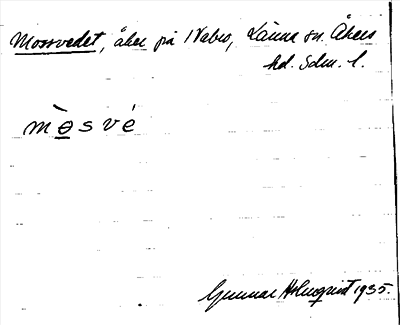 Mossvedet, åker på 1 Valbro, Länna sn. Åkers
hd. Sdm. l.
mɵ̀své
Gunnar Holmqvist 1935.